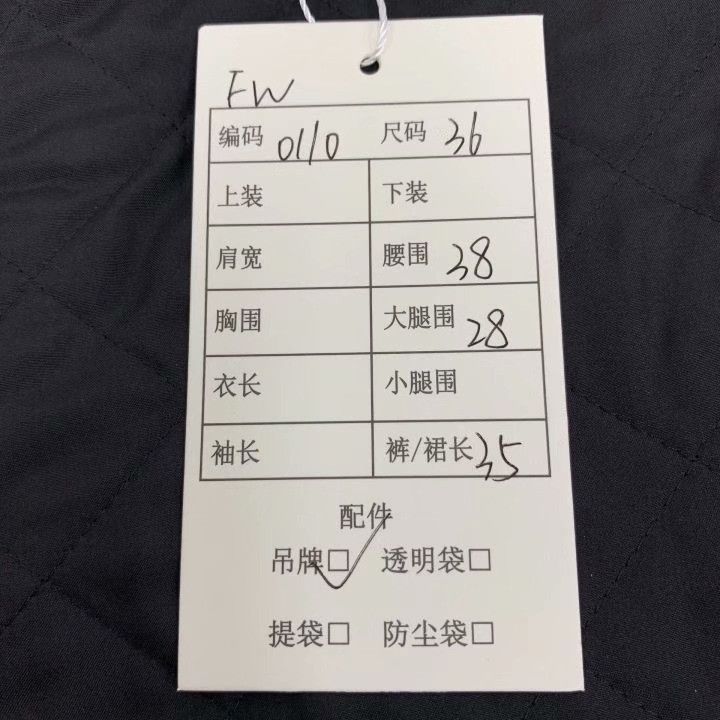 FW
编码 0110 尺码 36
上装 下装
肩宽 腰围 38
胸围 大腿围 28
衣长 小腿围
袖长 裤/裙长 35
配件
吊牌☑ 透明袋□
提袋□ 防尘袋□